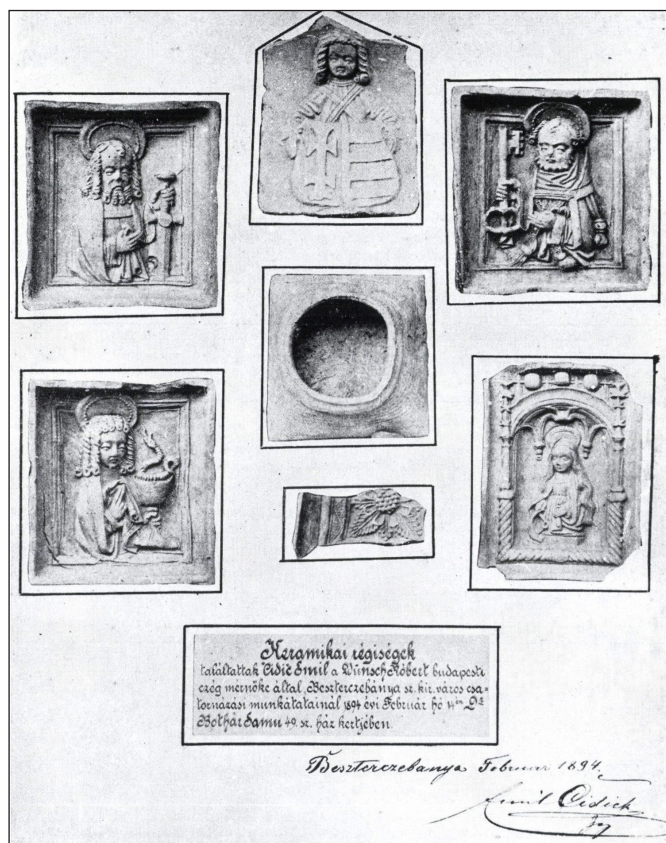 Keramikai régiségek
találtattak Cidić Emil a Wünsch Róbert budapesti
czég mérnöke által, Beszterczebánya sz. kir. város csa-
tornázási munkátatainál 1894 évi Február hó 14én Dr
Bothár Samu 49. sz. ház kertjében.
Beszterczebanya Februar 1894.
Emil Cidich